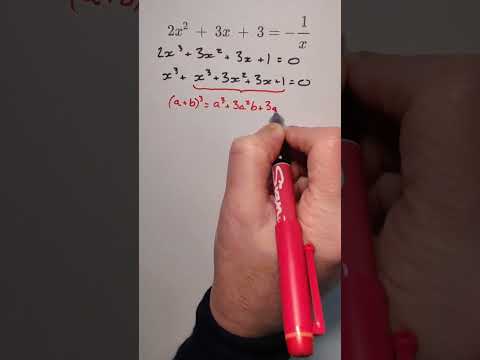 2x² + 3x + 3 = -1/x
2x³ + 3x² + 3x + 1 = 0
x³ + x³ + 3x² + 3x + 1 = 0
(a+b)³ = a³ + 3a²b + 3a